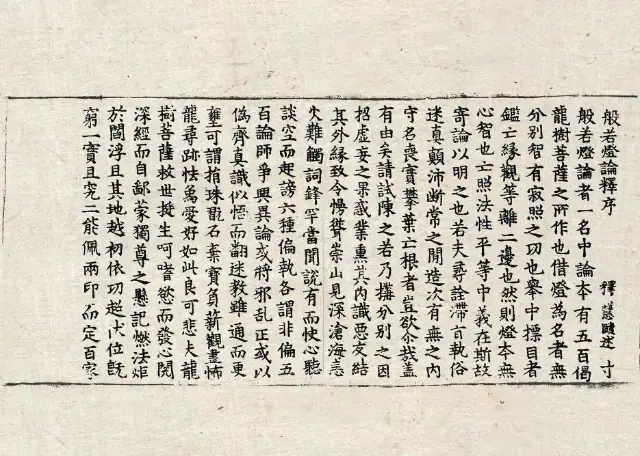 般若燈論釋序　釋慧賾述　寸
般若燈論者一名中論本有五百偈
龍樹菩薩之所作也借燈為名者無
分別智有寂照之功也舉中標目者
鑑亡緣觀等離二邊也然則燈本無
心智也亡照法性平等中義在斯故
寄論以明之也若夫尋詮滯言執俗
迷真顛沛斷常之間造次有無之內
守名喪實攀葉亡根者豈欲尒哉蓋
有由矣請試陳之若乃構分別之因
招虛妄之果惑業熏其內識惡友結
其外緣致令慢聳崇山見深滄海恚
火難觸詞鋒罕當聞說有而快心聽
談空而起謗六種偏執各謂非偏五
百論師爭興異論或將邪亂正或以
偽齊真識似悟而翻迷教雖通而更
壅可謂捐珠翫石棄寶負薪觀畫怖
龍尋跡怯為愛好如此良可悲夫龍
樹菩薩救世挺生呵嗜慾而發心閱
深經而自鄙蒙獨尊之懸記燃法炬
於閻浮且其地越初依功超伏位既
窮一實且究二能佩兩印而定百家